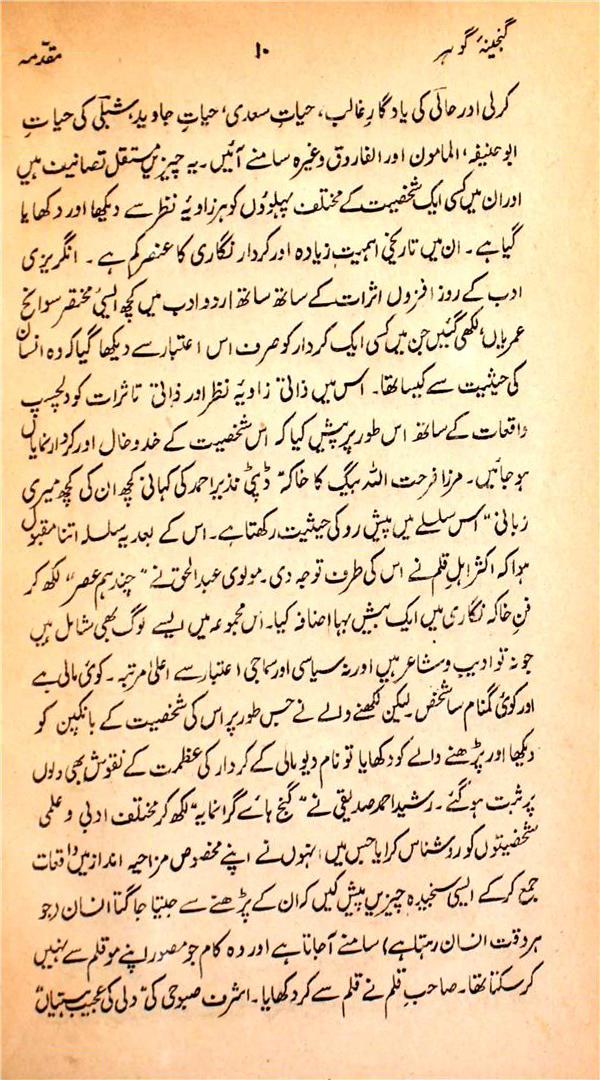 گنجینۂ گوہر ۱۰ مقدّمہ
کرلی اور حالیؔ کی یادگارِ غالب، حیاتِ سعدی، حیاتِ جاوید، شبلیؔ کی حیاتِ
ابو حنیفہ، المامون اور الفاروق وغیرہ سامنے آئیں۔ یہ چیزیں مستقل تصانیف ہیں
اور ان میں کسی ایک شخصیت کے مختلف پہلوؤں کو ہر زاویۂ نظر سے دیکھا اور دکھایا
گیا ہے۔ ان میں تاریخی اہمیت زیادہ اور کردار نگاری کا عنصر کم ہے۔ انگریزی
ادب کے روز افزوں اثرات کے ساتھ ساتھ اردو ادب میں کچھ ایسی مختصر سوانح
عمریاں لکھی گئیں جن میں کسی ایک کردار کو صرف اس اعتبار سے دیکھا گیا کہ وہ انسان
کی حیثیت سے کیسا تھا۔ اس میں ذاتی زاویۂ نظر اور ذاتی تاثرات کو دلچسپ
واقعات کے ساتھ اس طور پر پیش کیا کہ اس شخصیت کے خدوخال اور کردار نمایاں
ہو جائیں۔ مرزا فرحت اللہ بیگ کا خاکہ "ڈپٹی نذیر احمد کی کہانی کچھ ان کی کچھ میری
زبانی" اس سلسلے میں پیش رو کی حیثیت رکھتا ہے۔ اس کے بعد یہ سلسلہ اتنا مقبول
ہوا کہ اکثر اہلِ قلم نے اس کی طرف توجہ دی۔ مولوی عبدالحق نے "چند ہم عصر" لکھ کر
فنِ خاکہ نگاری میں ایک بیش بہا اضافہ کیا۔ اس مجموعہ میں ایسے لوگ بھی شامل ہیں
جو نہ تو ادیب و شاعر ہیں اور نہ سیاسی اور سماجی اعتبار سے اعلیٰ مرتبہ۔ کوئی مالی ہے
اور کوئی گمنام سا شخص لیکن لکھنے والے نے جس طور پر اس کی شخصیت کے بانکپن کو
دیکھا اور پڑھنے والے کو دکھایا تو نام دیو مالی کے کردار کی عظمت کے نقوش بھی دلوں
پر ثبت ہو گئے۔ رشید احمد صدیقی نے "گنج ہائے گرانمایہ" لکھ کر مختلف ادبی و علمی
شخصیتوں کو روشناس کرایا جس میں انہوں نے اپنے مخصوص مزاحیہ انداز میں واقعات
جمع کر کے ایسی سنجیدہ چیزیں پیش کیں کہ ان کے پڑھنے سے جیتا جاگتا انسان (جو
ہر وقت انسان رہتا ہے) سامنے آ جاتا ہے اور وہ کام جو مصور اپنے موقلم سے نہیں
کر سکتا تھا۔ صاحبِ قلم نے قلم سے کر دکھایا۔ اشرف صبوحی کی "دلی کی عجیب ہستیاں"